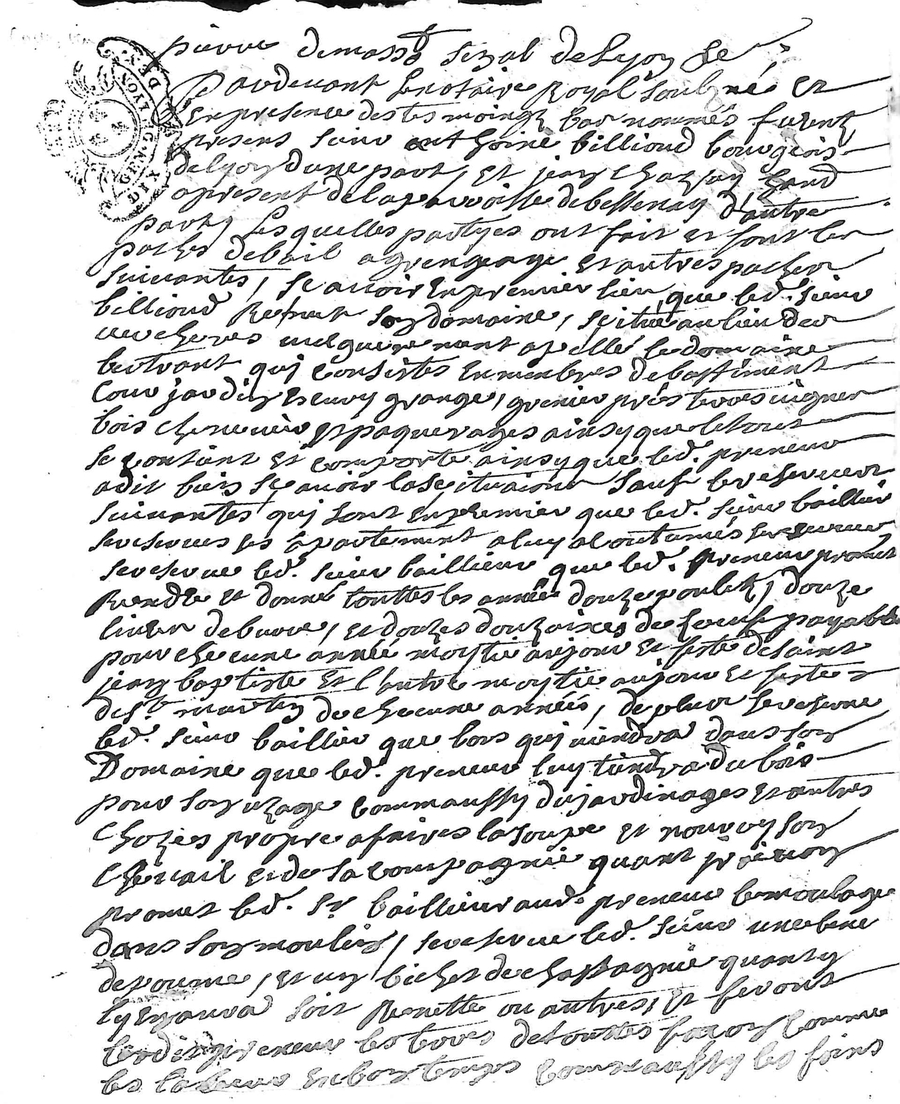 pierre demasso senal de Lyon le
Pardevant le notaire Royal soubzné et
En presence des tesmoingz bas nommés furent
present sieur enthoine billioud bourgeois
de lyon dune part, et jean
apresent de la parroisse de bessenay d'autre
part, Lesquelles partyes ont fait et font les
paches de bail a grengeage et autres paches
suivantes, scavoir En premier lieu que led. sieur
billioud Remet son domaine, scitué au lieu des
apellé le domaine
bertrant quj consistes En membres de bastiment
Cour jardin Escury grange, grenier près terres vignes
bois cheneuier et paquerages ainsy que le tout
se contient et comporte ainsy que led. preneur
a dit bien scavoir la scituaion sauf les reserves
suivantes quj sont en premier que led. sieur baillieur
se reserves les apartement a luy
se reserve led. sieur baillieur que led. preneur promet
Rendre et donné touttes les année douze poulets, douze
livres de burre, et douzes douzaines de Loeufs payable
pour checune année moytie au jour et feste de saint
jean baptiste et l'autre moytie au jour et feste
de St. martin de checune années, de plus se reserve
led. sieur baillier que lors quj viendra dans son
Domaine que led. preneur luy tiendra du bois
pour son uzage comm'aussy du jardinages et autres
chozes propre a faires la soupe et nourry son
chevail et de sa compagnie quant
promet led. sr. baillieur aud. preneur le moulage
dans son moulin, se reserve led. sieur une bene
de poume, et un bichet de chastagnie quant y
ly en aura soit Renette ou autres, et feront
lesdit preneur les terres de touttes fasson comme
les labeur En bon temps comm'aussy les foins